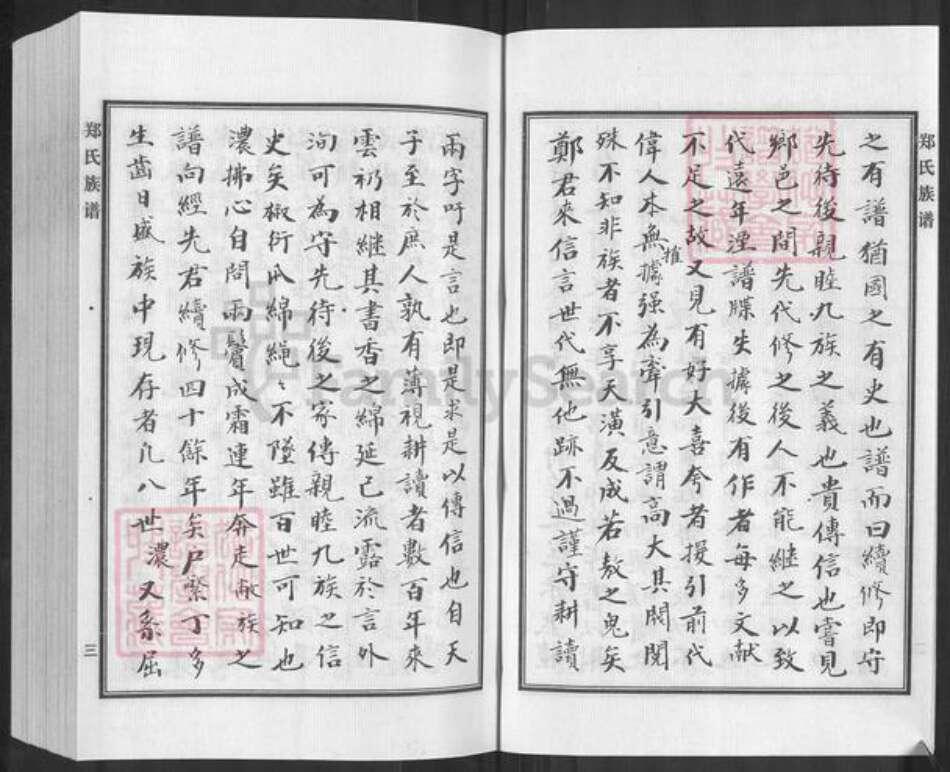 郑氏族谱
之有譜猶國之有史也譜而曰續修即守
先待後親睦九族之義也貴傳信也嘗見
鄉邑之間先代修之後人不能繼之以致
代遠年湮譜牒失據後有作者每多文献
不足之故又見有好大喜夸者援引前代
偉人本無據强為牽引意謂高大其閥閱
推
殊不知非族者不享天潢反成若敖之鬼矣
鄭君來信言世代無他跡不過謹守耕讀
兩字吁是言也即是求是以傳信也自天
子至於庶人孰有薄視耕讀者數百年來
雲礽相繼其書香之綿延已流露於言外
洵可為守先待後之家傳親睦九族之信
史矣椒衍瓜綿繩〻不墜雖百世可知也
濃拂心自問兩鬢成霜連年奔走敝族之
譜向經先君續修四十餘年矣戶繁丁多
生齒日盛族中現存者凡八世濃又系屈
郑氏族谱
三
FamilySearch